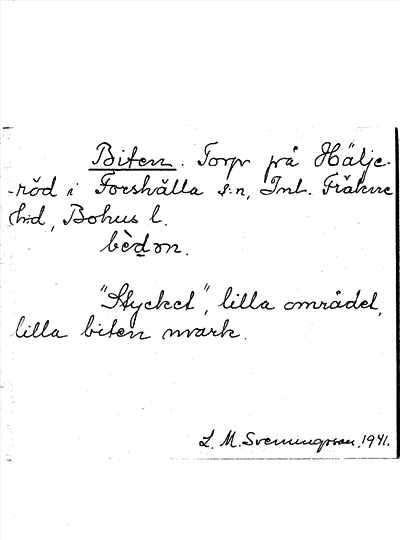 Biten. Torp på Hälje-
-röd i Forshälla s:n, Inl. Fräkne
h:d, Bohus l.
bèdən.
"Stycket", lilla området,
lilla biten mark.
L. M. Svenungsson. 1941.